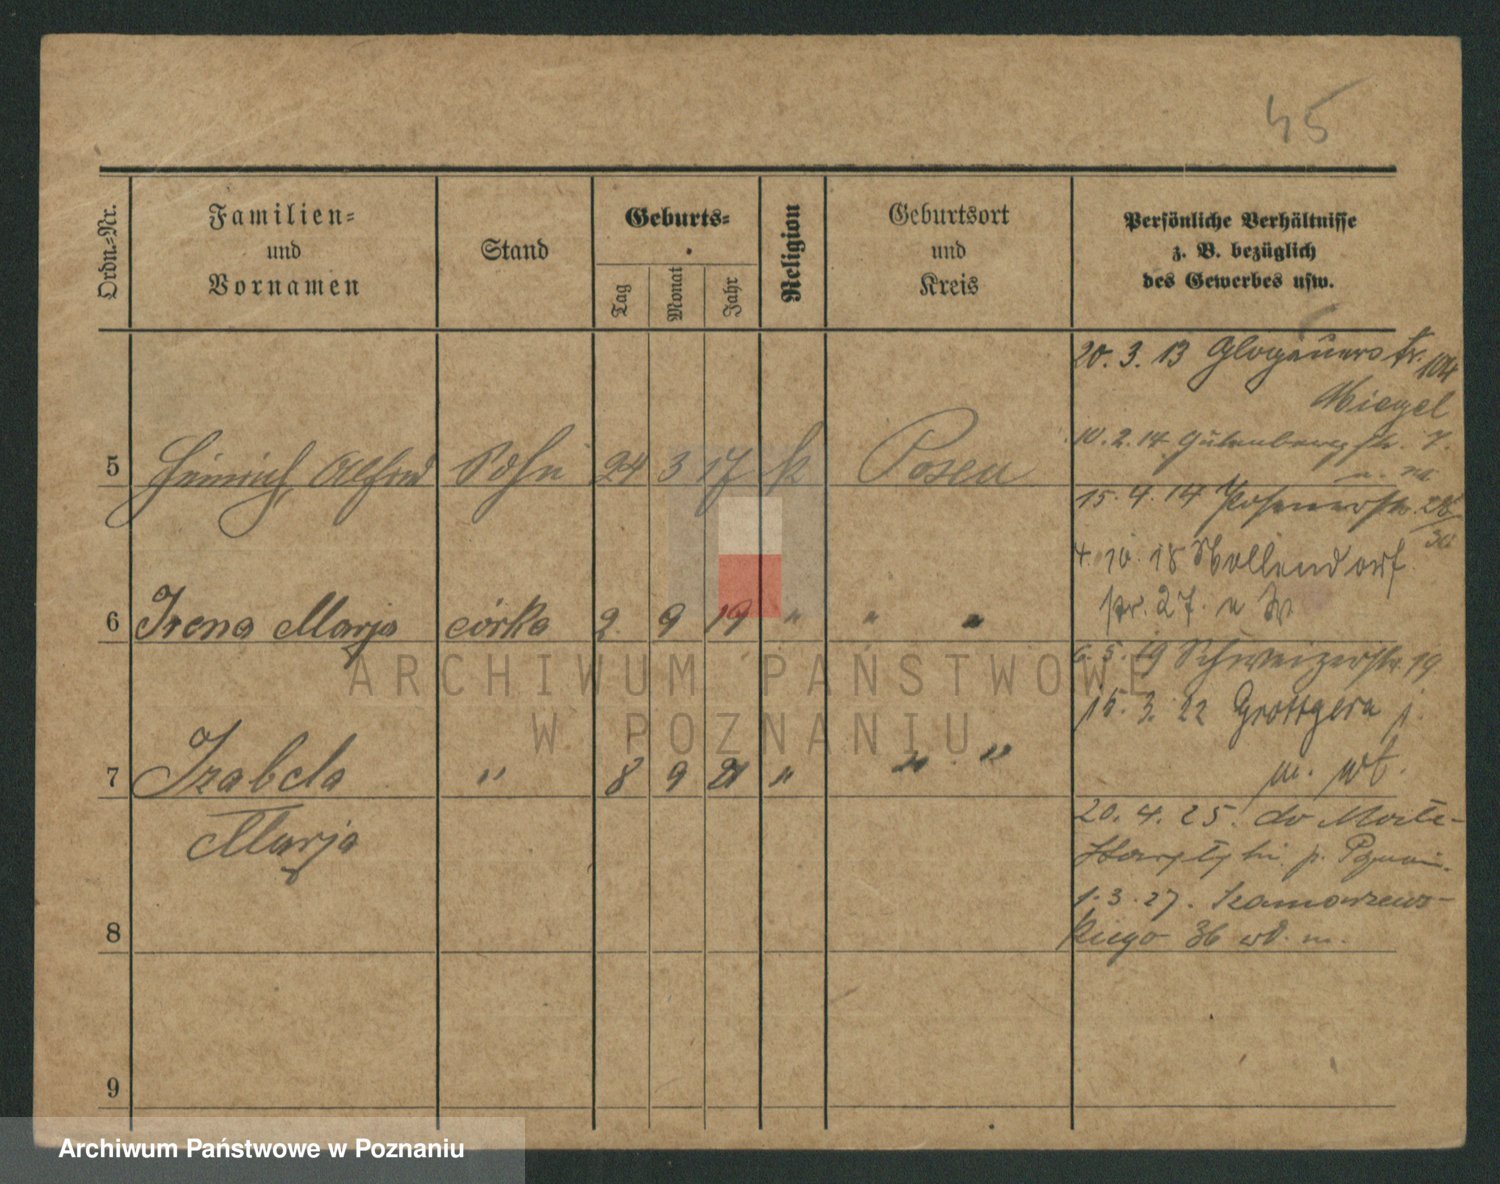 45
Ordn.-Nr.
Familien-
und
Vornamen
Stand
Geburts-
Tag
Monat
Jahr
Religion
Geburtsort
und
Kreis
Persönliche Verhältnisse
z. B. bezüglich
des Gewerbes usw.
5 Heinrich Alfred Sohn 24 3 17 k Posen
6 Irena Marja córka 2 9 19 " " "
7 Izabela " 8 9 21 " " "
Marja
8
9
20. 3. 13 Glogauerstr. 104
Miegel
10. 2. 14 Gutenbergstr. 7.
15. 4. 14 Posenerstr. 28
30
4. 10. 18 Nollendorf
str. 27.
6. 5. 19 Schweizerstr. 19
15. 3. 22 Grottgera
20. 4. 25. do
p.
1. 3. 27. Szamarzews-
kiego 36
ARCHIWUM PAŃSTWOWE
W POZNANIU
Archiwum Państwowe w Poznaniu